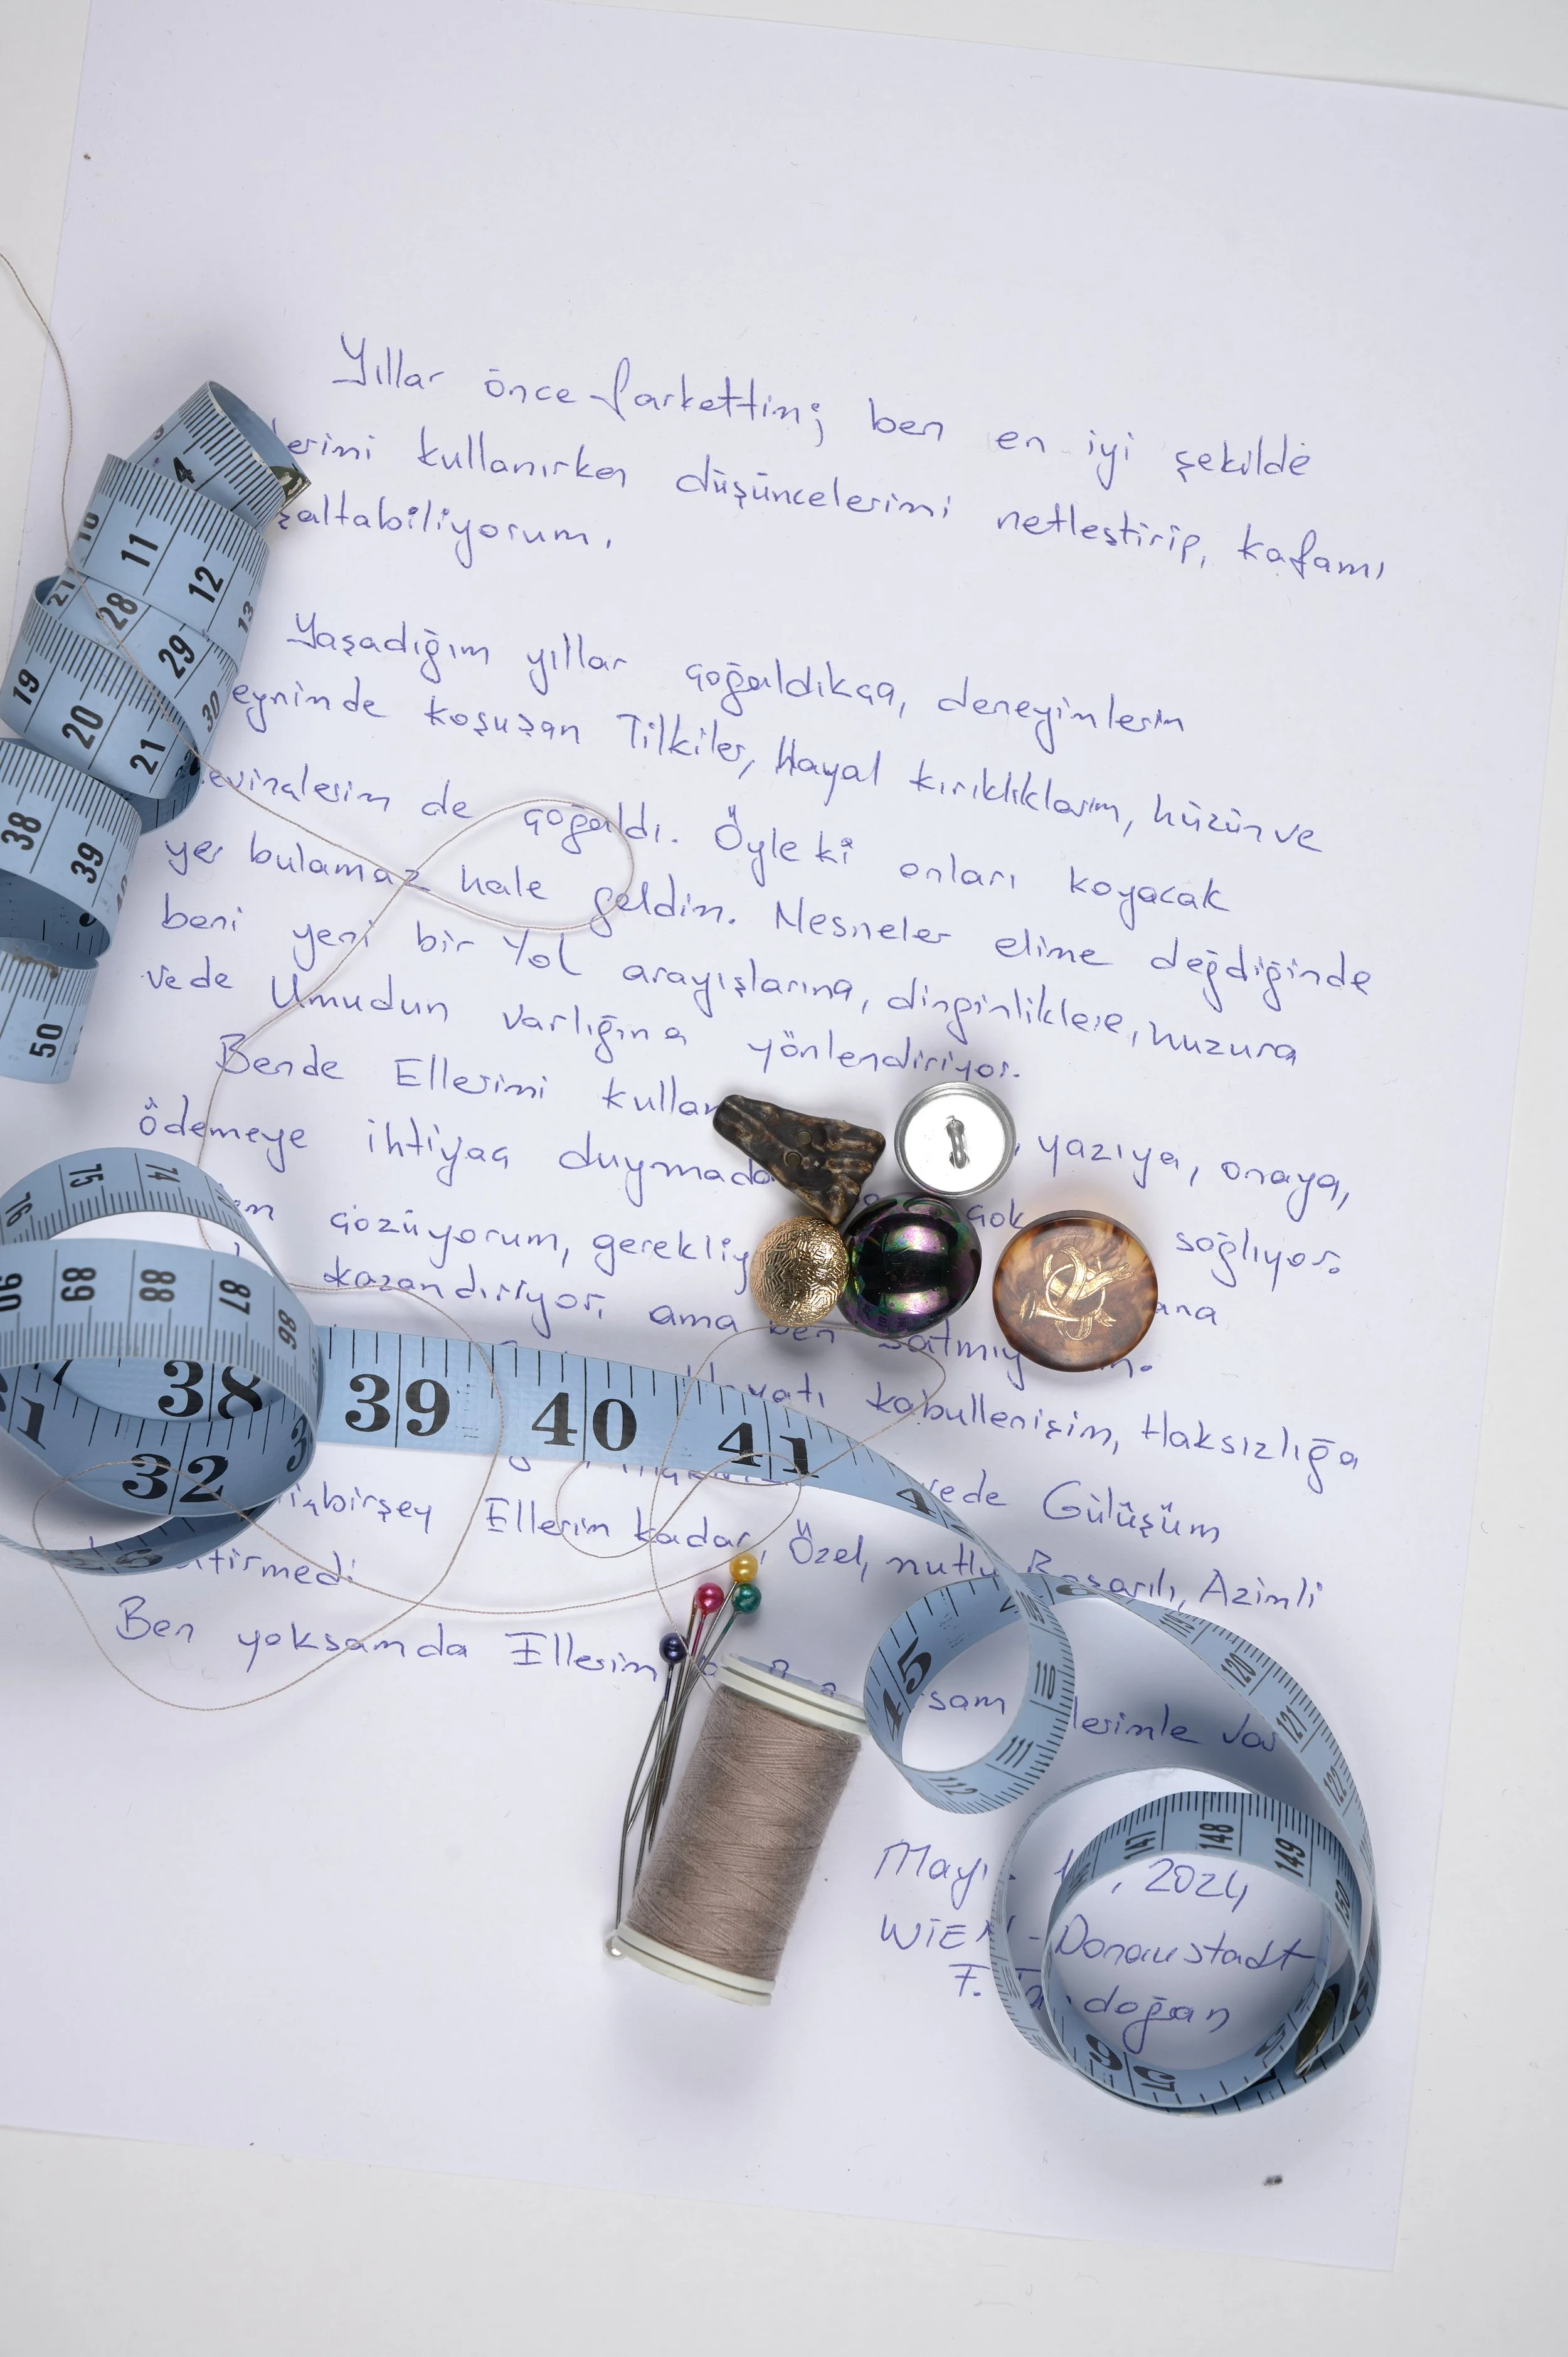 Yıllar önce farkettim; ben en iyi şekilde
erimi kullanırken düşüncelerimi netleştirip, kafamı
şaltabiliyorum.
Yaşadığım yıllar çoğaldıkça, deneyimlerim
eynimde koşuşan Tilkiler, Hayal kırıklıklarım, hüzün ve
evinçlerim de çoğaldı. Öyle ki onları koyacak
yer bulamaz hale geldim. Nesneler elime değdiğinde
beni yeni bir Yol arayışlarına, dinginliklere, huzura
ve de Umudun varlığına yönlendiriyor.
Bende Ellerimi kullan yazıya, onaya,
ödemeye ihtiyaç duymada
çözüyorum, gerekliy çok sağlıyor.
kazandırıyor, ama ben satmıy ana
kabullenişim, Haksızlığa
Gülüşüm
birşey Ellerim kadar, Özel, mutlu Başarılı, Azimli
tirmedi
Ben yoksamda Ellerim sam lerimle var
May , 2024
WİEN - Donaustadt
F. doğan
4
10 11 12 13
27 28 29 30
19 20 21
38 39
50
75 74
90 89 88 87 86
38 39 40 41
32
45
110 111 112
120 121 122
147 148 149 150